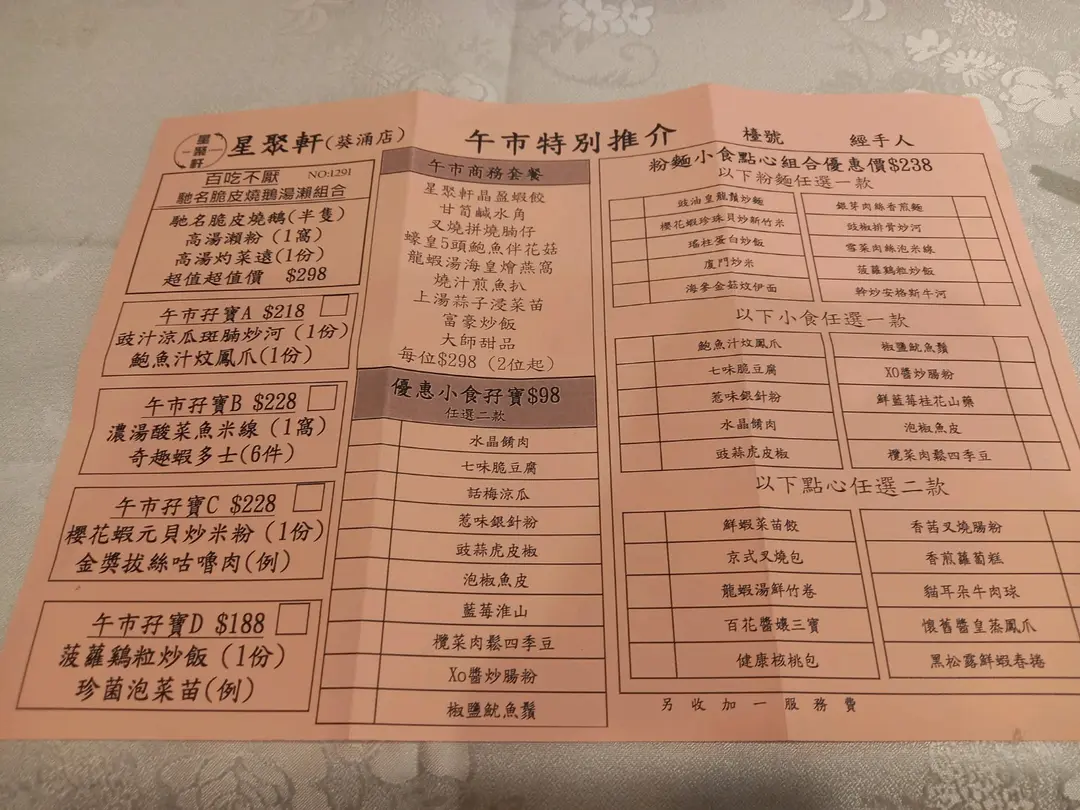 星聚軒
星聚軒(葵涌店)
午市特別推介
檯號
經手人
百吃不厭 NO:1291
馳名脆皮燒鵝湯瀨組合
馳名脆皮燒鵝(半隻)
高湯瀨粉(1窩)
高湯灼菜遠(1份)
超值超值價 $298
午市孖寶A $218
豉汁涼瓜斑腩炒河(1份)
鮑魚汁炆鳳爪(1份)
午市孖寶B $228
濃湯酸菜魚米線(1窩)
奇趣蝦多士(6件)
午市孖寶C $228
櫻花蝦元貝炒米粉(1份)
金獎拔絲咕嚕肉(例)
午市孖寶D $188
菠蘿鷄粒炒飯(1份)
珍菌泡菜苗(例)
午市商務套餐
星聚軒晶盈蝦餃
甘筍鹹水角
叉燒拼燒腩仔
蠔皇5頭鮑魚伴花菇
龍蝦湯海皇燴燕窩
燒汁煎魚扒
上湯蒜子浸菜苗
富豪炒飯
大師甜品
每位$298(2位起)
優惠小食孖寶$98
任選二款
水晶餚肉
七味脆豆腐
話梅涼瓜
惹味銀針粉
豉蒜虎皮椒
泡椒魚皮
藍莓淮山
欖菜肉鬆四季豆
Xo醬炒腸粉
椒鹽魷魚鬚
粉麵小食點心組合優惠價$238
以下粉麵任選一款
豉油皇龍鬚炒麵 銀芽肉絲香煎麵
櫻花蝦珍珠貝炒新竹米 豉椒排骨炒河
瑤柱蛋白炒飯 雪菜肉絲泡米線
廈門炒米 菠蘿鷄粒炒飯
海參金菇炆伊面 幹炒安格斯牛河
以下小食任選一款
鮑魚汁炆鳳爪 椒鹽魷魚鬚
七味脆豆腐 XO醬炒腸粉
惹味銀針粉 鮮藍莓桂花山藥
水晶餚肉 泡椒魚皮
豉蒜虎皮椒 欖菜肉鬆四季豆
以下點心任選二款
鮮蝦菜苗餃 香茜叉燒腸粉
京式叉燒包 香煎蘿蔔糕
龍蝦湯鮮竹卷 貓耳朵牛肉球
百花醬釀三寶 懷舊醬皇蒸鳳爪
健康核桃包 黑松露鮮蝦春捲
另收加一服務費